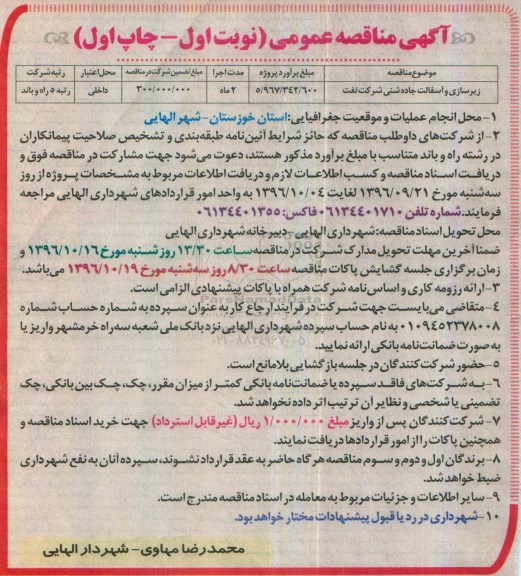 آگهی مناقصه عمومی (نوبت اول - چاپ اول)
موضوع مناقصه | مبلغ برآورد پروژه | مدت اجرا | مبلغ تضمین شرکت در مناقصه | محل اعتبار | رتبه شرکت
زیرسازی و آسفالت جاده شنی شرکت نفت | ۵/۹۶۷/۳۴۲/۶۰۰ | ۲ ماه | ۳۰۰/۰۰۰/۰۰۰ | داخلی | رتبه ۵ راه و باند
۱- محل انجام عملیات و موقعیت جغرافیایی: استان خوزستان - شهر الهایی
۲- از شرکت‌های داوطلب مناقصه که حائز شرایط آئین‌نامه طبقه‌بندی و تشخیص صلاحیت پیمانکاران
در رشته راه و باند متناسب با مبلغ برآورد مذکور هستند، دعوت می‌شود جهت مشارکت در مناقصه فوق و
دریافت اسناد مناقصه و کسب اطلاعات لازم و دریافت اطلاعات مربوط به مشخصات پروژه از روز
سه‌شنبه مورخ ۱۳۹۶/۰۹/۲۱ لغایت ۱۳۹۶/۱۰/۰۴ به واحد امور قراردادهای شهرداری الهایی مراجعه
فرمایند. شماره تلفن ۰۶۱۳۴۴۰۱۷۱۰ فاکس: ۰۶۱۳۴۴۰۱۳۵۵
محل تحویل اسناد مناقصه: شهرداری الهایی - دبیرخانه شهرداری الهایی
ضمنا آخرین مهلت تحویل مدارک شرکت در مناقصه ساعت ۱۳/۳۰ روز شنبه مورخ ۱۳۹۶/۱۰/۱۶ و
زمان برگزاری جلسه گشایش پاکات مناقصه ساعت ۸/۳۰ روز سه‌شنبه مورخ ۱۳۹۶/۱۰/۱۹ می‌باشد.
۳- ارائه رزومه کاری و اساس‌نامه شرکت همراه با پاکات پیشنهادی الزامی است.
۴- متقاضی می‌بایست جهت شرکت در فرایند ارجاع کار به عنوان سپرده به شماره حساب شماره
۰۱۰۹۴۵۲۳۷۸۰۰۸ به نام حساب سپرده شهرداری الهایی نزد بانک ملی شعبه سه راه خرمشهر واریز یا
به صورت ضمانت‌نامه بانکی ارائه نمایید.
۵- حضور شرکت کنندگان در جلسه بازگشایی بلامانع است.
۶- به شرکت‌های فاقد سپرده یا ضمانت‌نامه بانکی کمتر از میزان مقرر، چک، چک بین بانکی، چک
تضمینی یا شخصی و نظایر آن ترتیب اثر داده نخواهد شد.
۷- شرکت کنندگان پس از واریز مبلغ ۱/۰۰۰/۰۰۰ ریال (غیرقابل استرداد) جهت خرید اسناد مناقصه و
همچنین پاکات را از امور قراردادها دریافت نمایند.
۸- برندگان اول و دوم و سوم مناقصه هرگاه حاضر به عقد قرارداد نشوند، سپرده آنان به نفع شهرداری
ضبط خواهد شد.
۹- سایر اطلاعات و جزئیات مربوط به معامله در اسناد مناقصه مندرج است.
۱۰- شهرداری در رد یا قبول پیشنهادات مختار خواهد بود.
محمدرضا مهاوی - شهردار الهایی